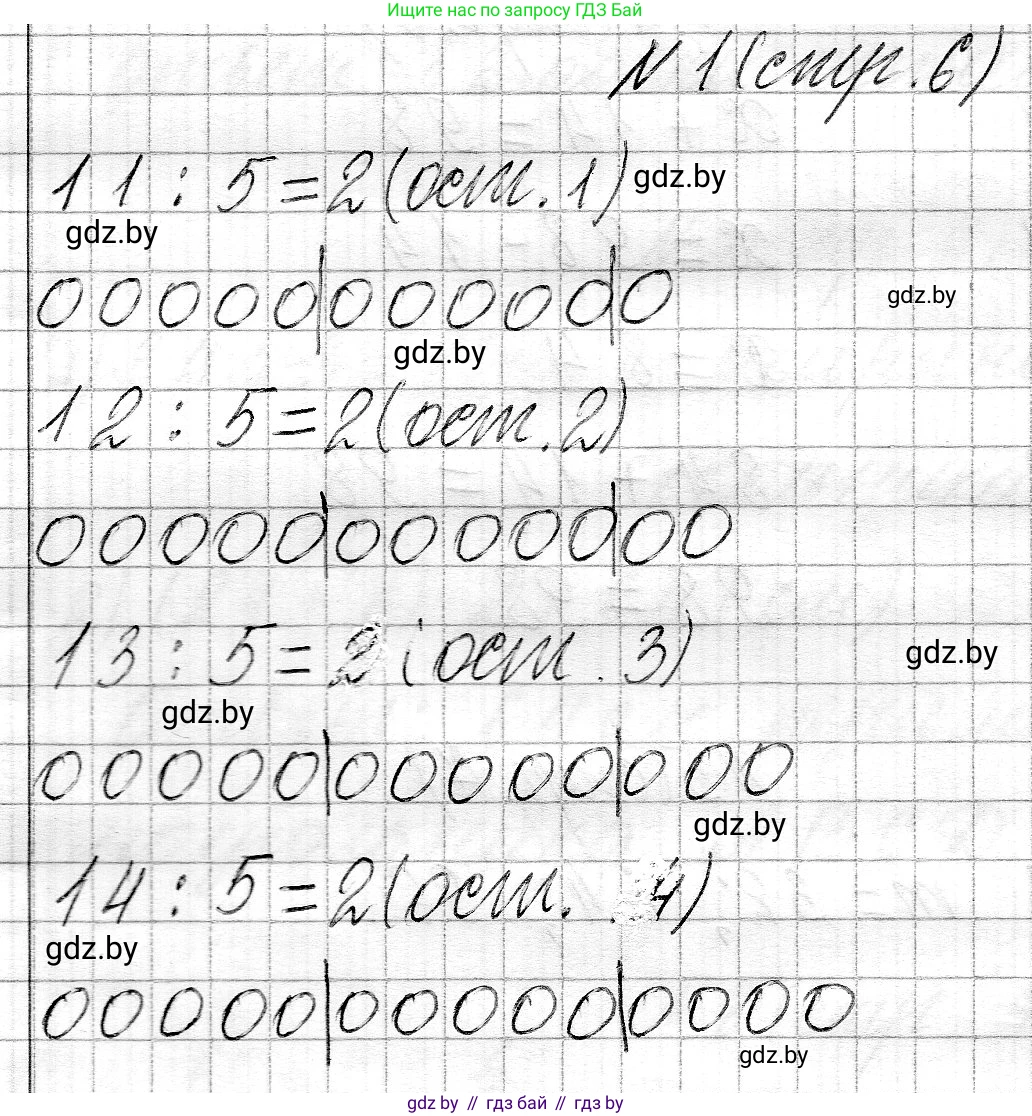 Ищите нас по запросу ГДЗ Бай
N 1 (стр. 6)
11 : 5 = 2 (ост. 1) gdz.by
gdz.by
00000|00000|0 gdz.by
gdz.by
12 : 5 = 2 (ост. 2)
00000|00000|00
13 : 5 = 2 (ост. 3) gdz.by
gdz.by
00000|00000|000
gdz.by
14 : 5 = 2 (ост. 4)
gdz.by
00000|00000|0000
gdz.by
gdz.by // гдз бай // гдз by